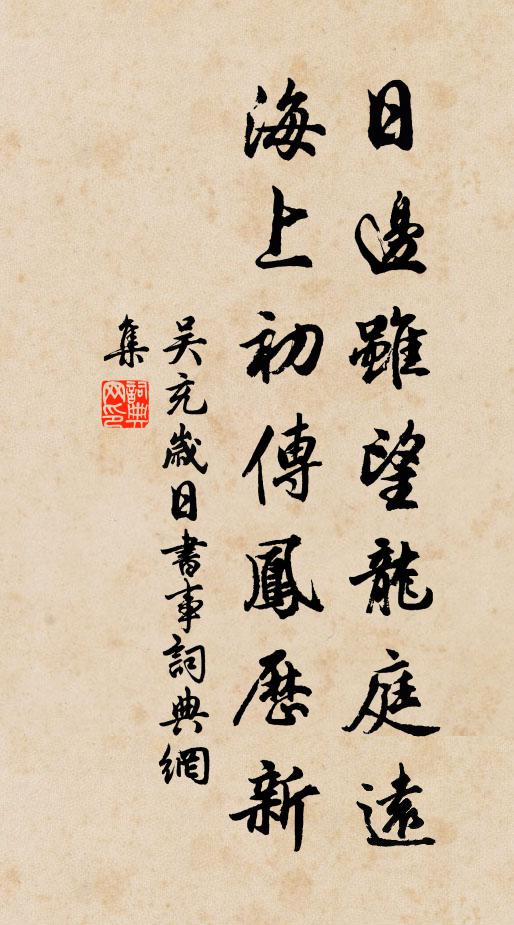 日邊雖望龍庭遠
海上初傳鳳歷新
吴充歲日書事詞典網
集
詞典网印